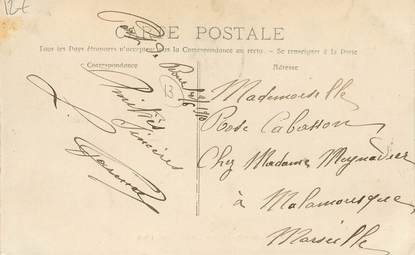 12€
CARTE POSTALE
Tous les Pays étrangers n'acceptent pas la Correspondance au recto. - Se renseigner à la Poste
Correspondance
Adresse
13
Amitiés
Sincères
Mademoiselle
Rose Cabasson
Chez Madame Meynadier
à Malamousque
Marseille